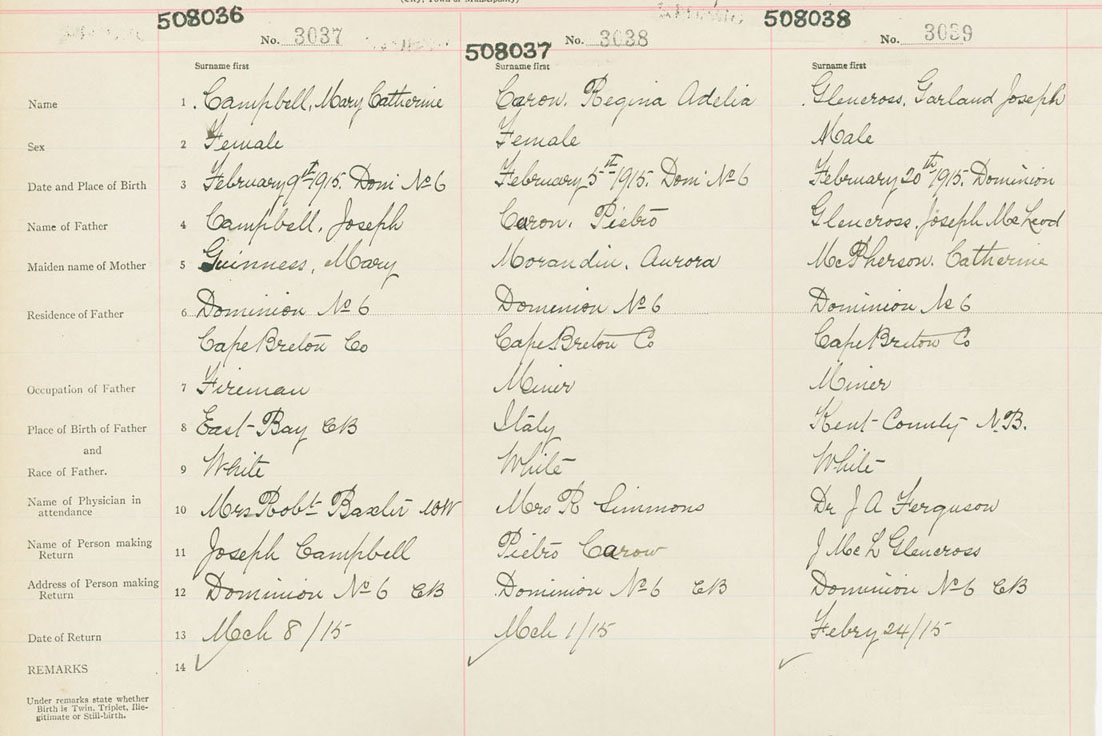 (City, Town or Municipality)
508036 508038
No. 3037 508037 No. 3038 No. 3039
Surname first Surname first Surname first
Name 1 Campbell, Mary Catherine Caron, Regina Adelia Glencross, Garland Joseph
Sex 2 Female Female Male
Date and Place of Birth 3 February 9th 1915. Dom No 6 February 5th 1915. Dom No 6 February 20th 1915. Dominion
Name of Father 4 Campbell, Joseph Caron, Pietro Glencross, Joseph McLeod
Maiden name of Mother 5 Guinness, Mary Morandin, Aurora McPherson, Catherine
Residence of Father 6 Dominion No 6 Dominion No 6 Dominion No 6
Cape Breton Co Cape Breton Co Cape Breton Co
Occupation of Father 7 Fireman Miner Miner
Place of Birth of Father 8 East-Bay CB Italy Kent-County N.B.
and
Race of Father. 9 White White White
Name of Physician in
attendance 10 Mrs Robt Baxter Mrs R Simmons Dr J A Ferguson
Name of Person making
Return 11 Joseph Campbell Pietro Carow J McL Glencross
Address of Person making
Return 12 Dominion No 6 CB Dominion No 6 CB Dominion No 6 CB
Date of Return 13 Mch 8/15 Mch 1/15 Febry 24/15
REMARKS 14
Under remarks state whether
Birth is Twin, Triplet, Ille-
gitimate or Still-birth.